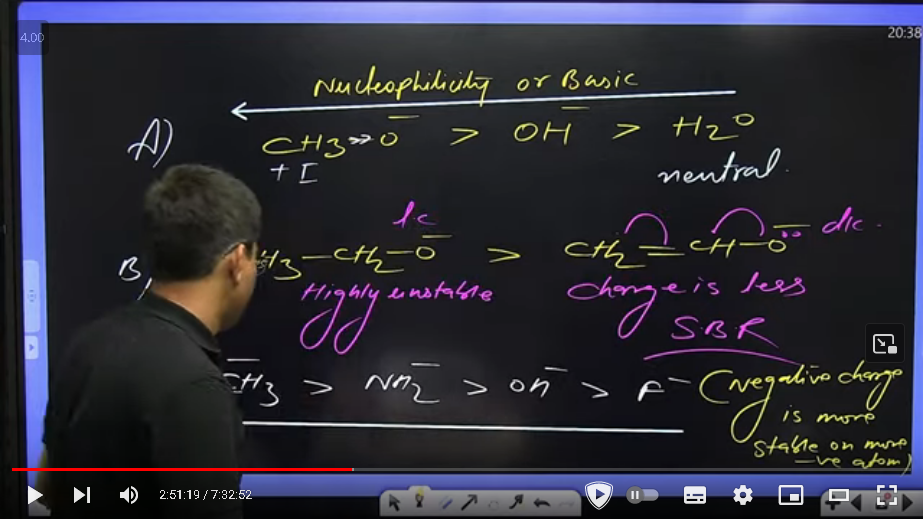 4.00
20:38
Nucleophilicity or Basic
A) CH3→O⁻ > OH⁻ > H2O
+I neutral.
lc dlc.
B) H3-CH2-O⁻ > CH2=CH-O⁻
Highly unstable charge is less
S.B.R
CH3⁻ > NH2⁻ > OH⁻ > F⁻ (negative charge
is more
stable on more
-ve atom)
2:51:19 / 7:32:52